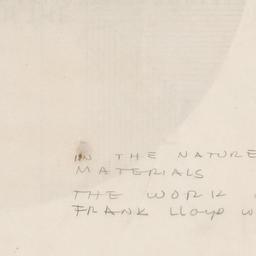 IN THE NATURE
MATERIALS
THE WORK
FRANK LLOYD W